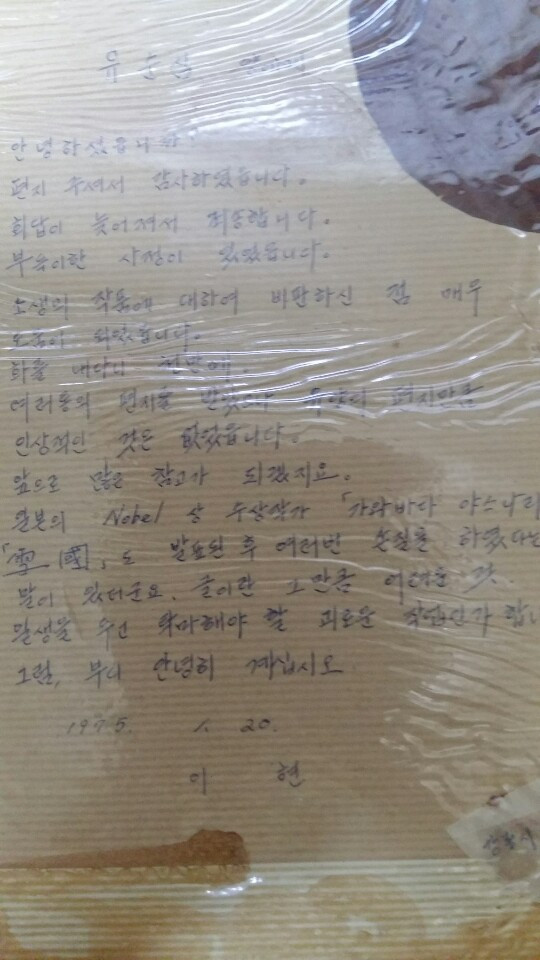 유 순
안녕하셨읍니까
편지 주셔서 감사하였읍니다.
회답이 늦어져서 죄송합니다.
부득이한 사정이 있었읍니다.
소생의 작품에 대하여 비판하신 점 매우
도움이 되었읍니다.
여러통의 편지를 받았으나 편지만큼
인상적인 것은 없었읍니다.
앞으로 많은 참고가 되겠지요.
일본의 Nobel 상 수상작가 「가와바다 야스나리
「雪國」도 발표된 후 여러번 손질을 하였다는
말이 있더군요. 글이란 그만큼 어려운 것.
일생을 두고 해야 할 괴로운 작업인가 합니
그럼, 부디 안녕히 계십시오
1975. 1. 20.
이 현